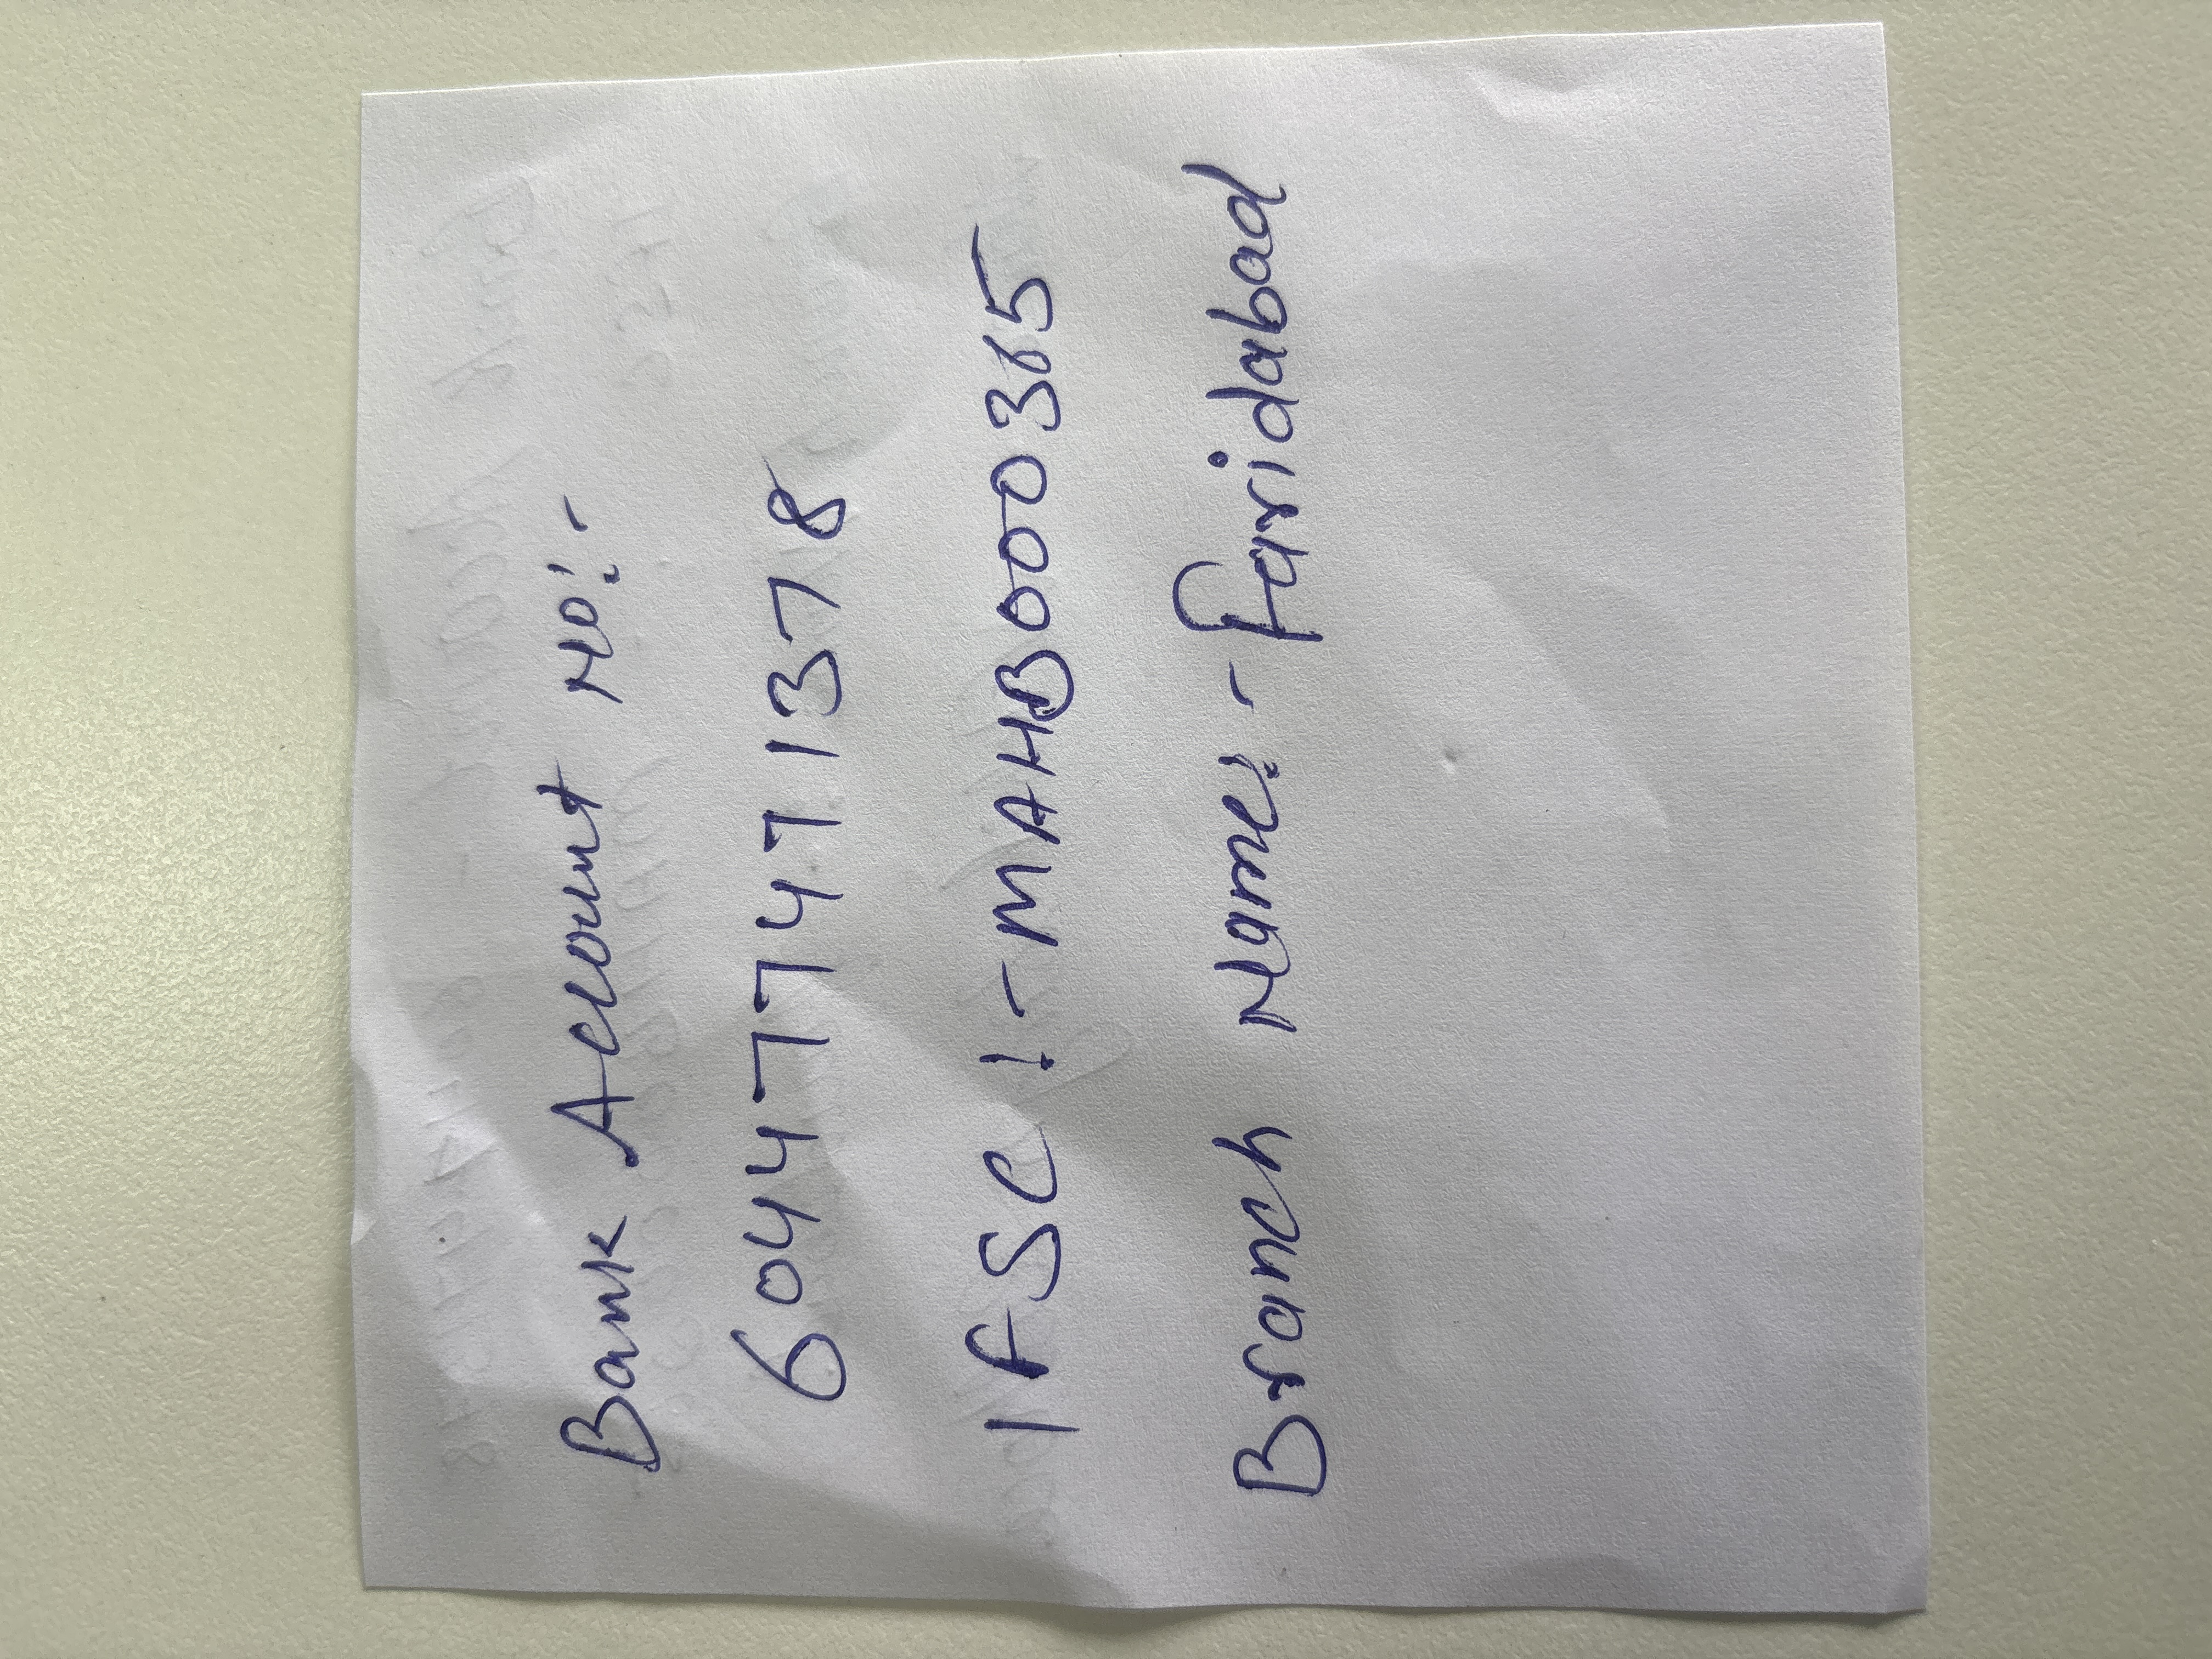 Bank Account No:-
60447747 1378
IFSC :- MAHB0000365
Branch Name:- Faridabad